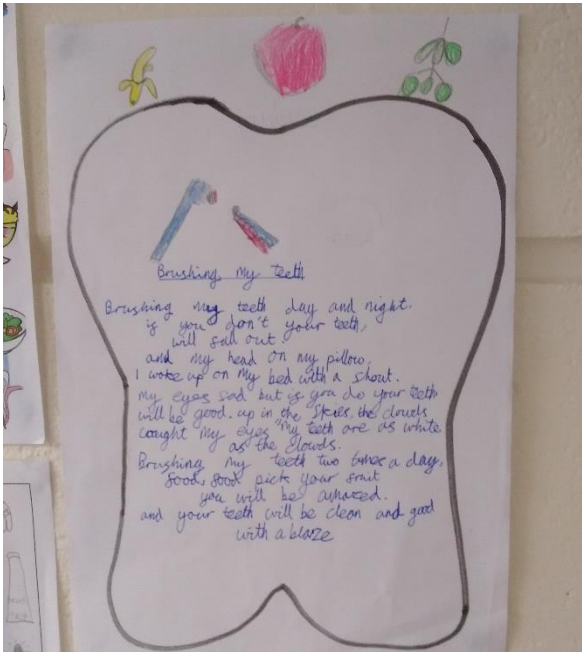 Brushing My teeth
Brushing my teeth day and night.
if you don't your teeth,
will fall out
and my head on my pillow,
I woke up on my bed with a shout.
My eyes sad but if you do your teeth
will be good. up in the skies, the clouds
caught my eyes "my teeth are as white
as the clouds.
Brushing my teeth two times a day,
food, food pick your fruit
you will be amazed.
and your teeth will be clean and good
with a blaze